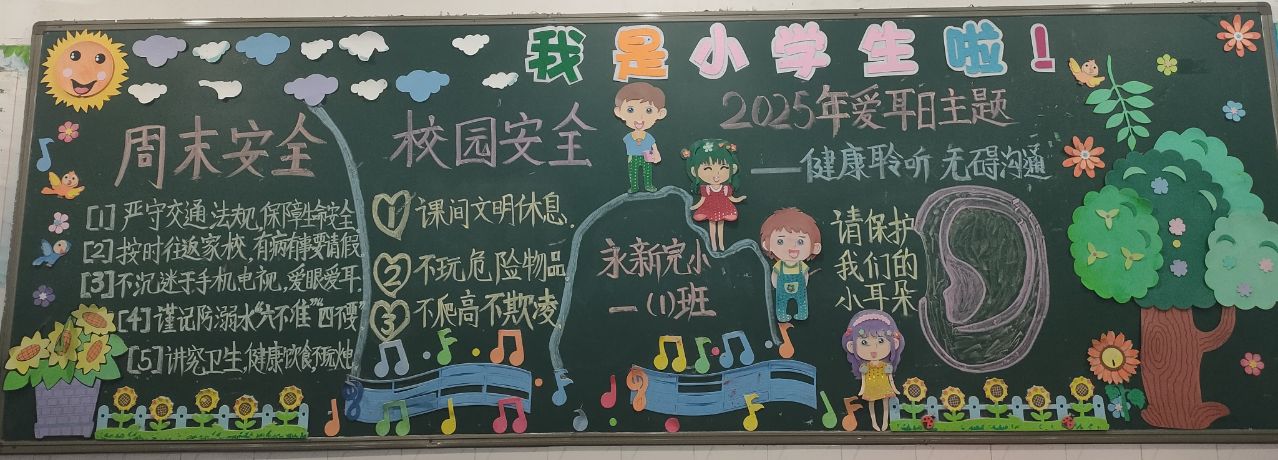 我是小学生啦！
周末安全
[1] 严守交通法规,保障生命安全.
[2] 按时往返家校,有病有事要请假
[3] 不沉迷于手机电视,爱眼爱耳.
[4] 谨记防溺水"六不准""四不要"
[5] 讲究卫生,健康饮食,不玩火炮
校园安全
1 课间文明休息.
2 不玩危险物品
3 不爬高不欺凌
永新完小
一(1)班
2025年爱耳日主题
——健康聆听 无碍沟通
请保护
我们的
小耳朵